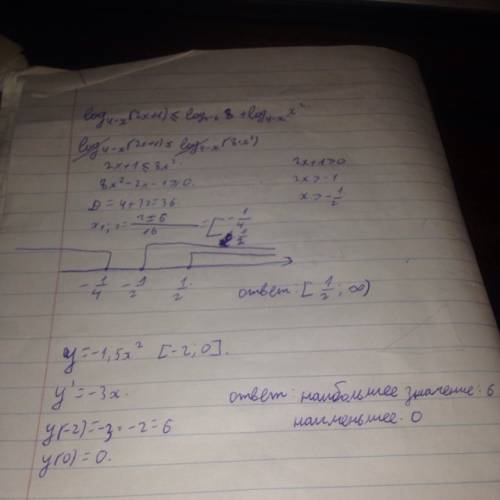 log₄₋ₓ(2x+1) ≤ log₄₋ₓ 8 + log₄₋ₓ x²
log₄₋ₓ(2x+1) ≤ log₄₋ₓ(8·x²)
2x+1 ≤ 8x² 2x+1>0
8x²-2x-1≥0. 2x>-1
D=4+32=36 x>-1/2
x₁,₂=(2±6)/16=[-1/4 1/2
-1/4 -1/2 1/2
ответ: [1/2; ∞)
y=-1,5x² [-2;0].
y'=-3x.
ответ: наибольшее значение: 6
y(-2)=-3·-2=6
наименьшее: 0
y(0)=0.